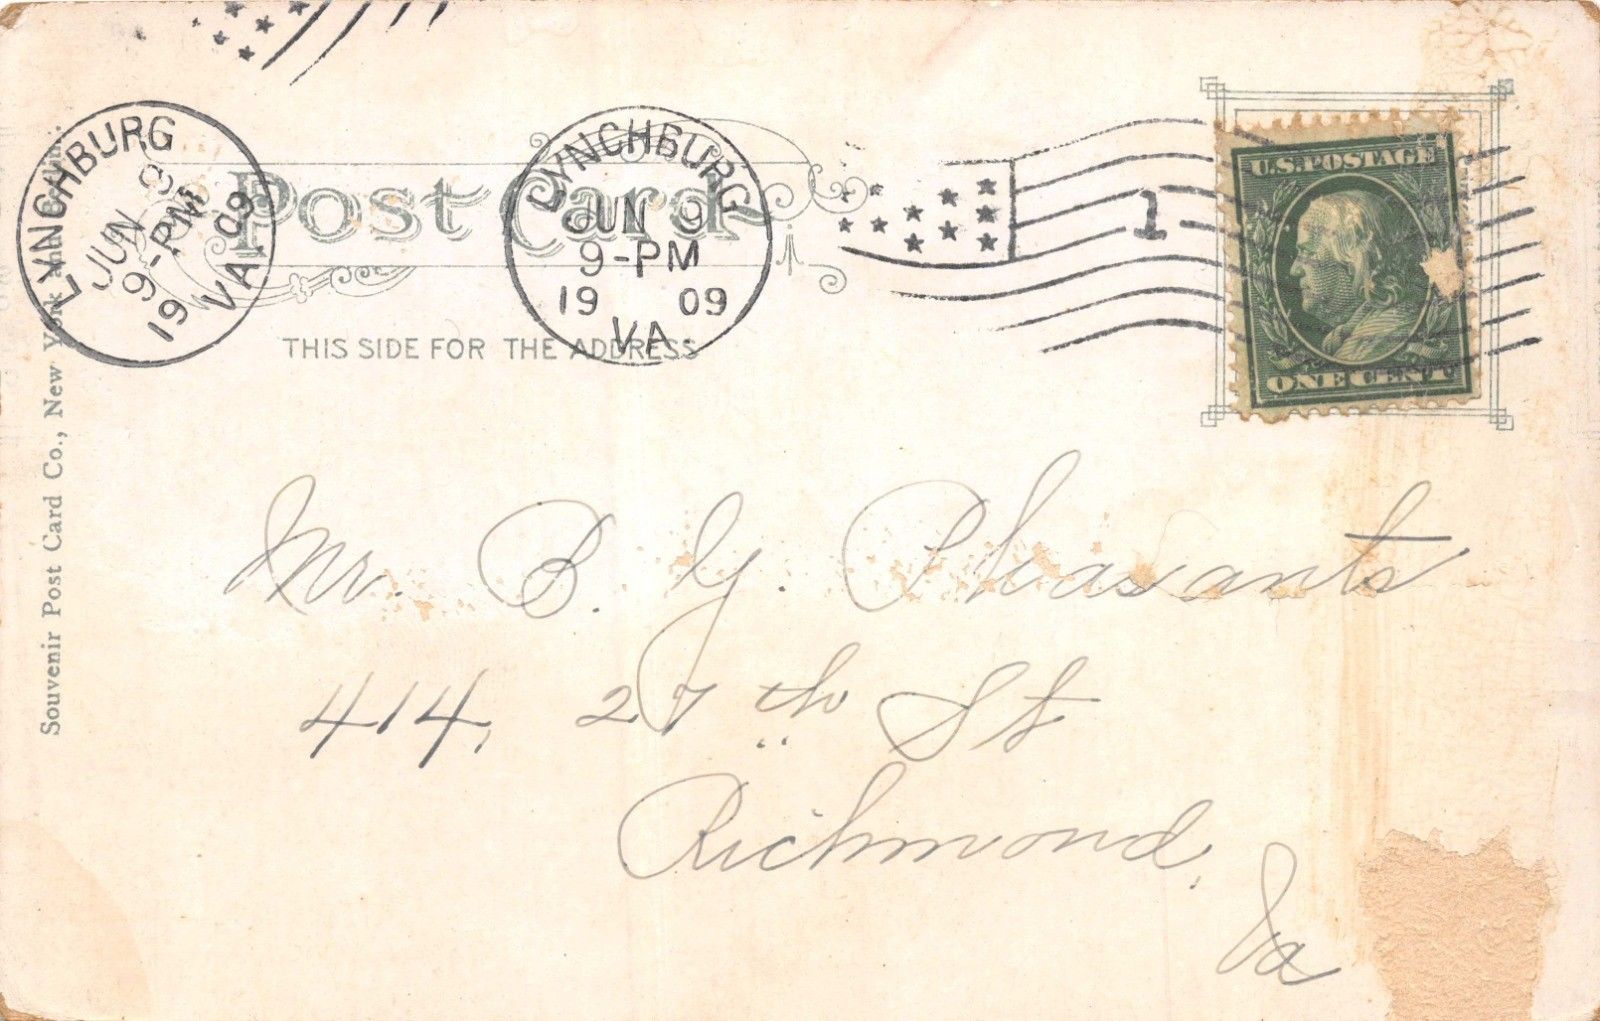 LYNCHBURG
JUN 9
9-PM
19 09
VA.
Post Card
LYNCHBURG
JUN 9
9-PM
19 09
VA.
1
U.S. POSTAGE
ONE CENT
THIS SIDE FOR THE ADDRESS
Souvenir Post Card Co., New York and Berlin.
Mr. B. Y. Pleasants
414, 27th St
Richmond,
Va